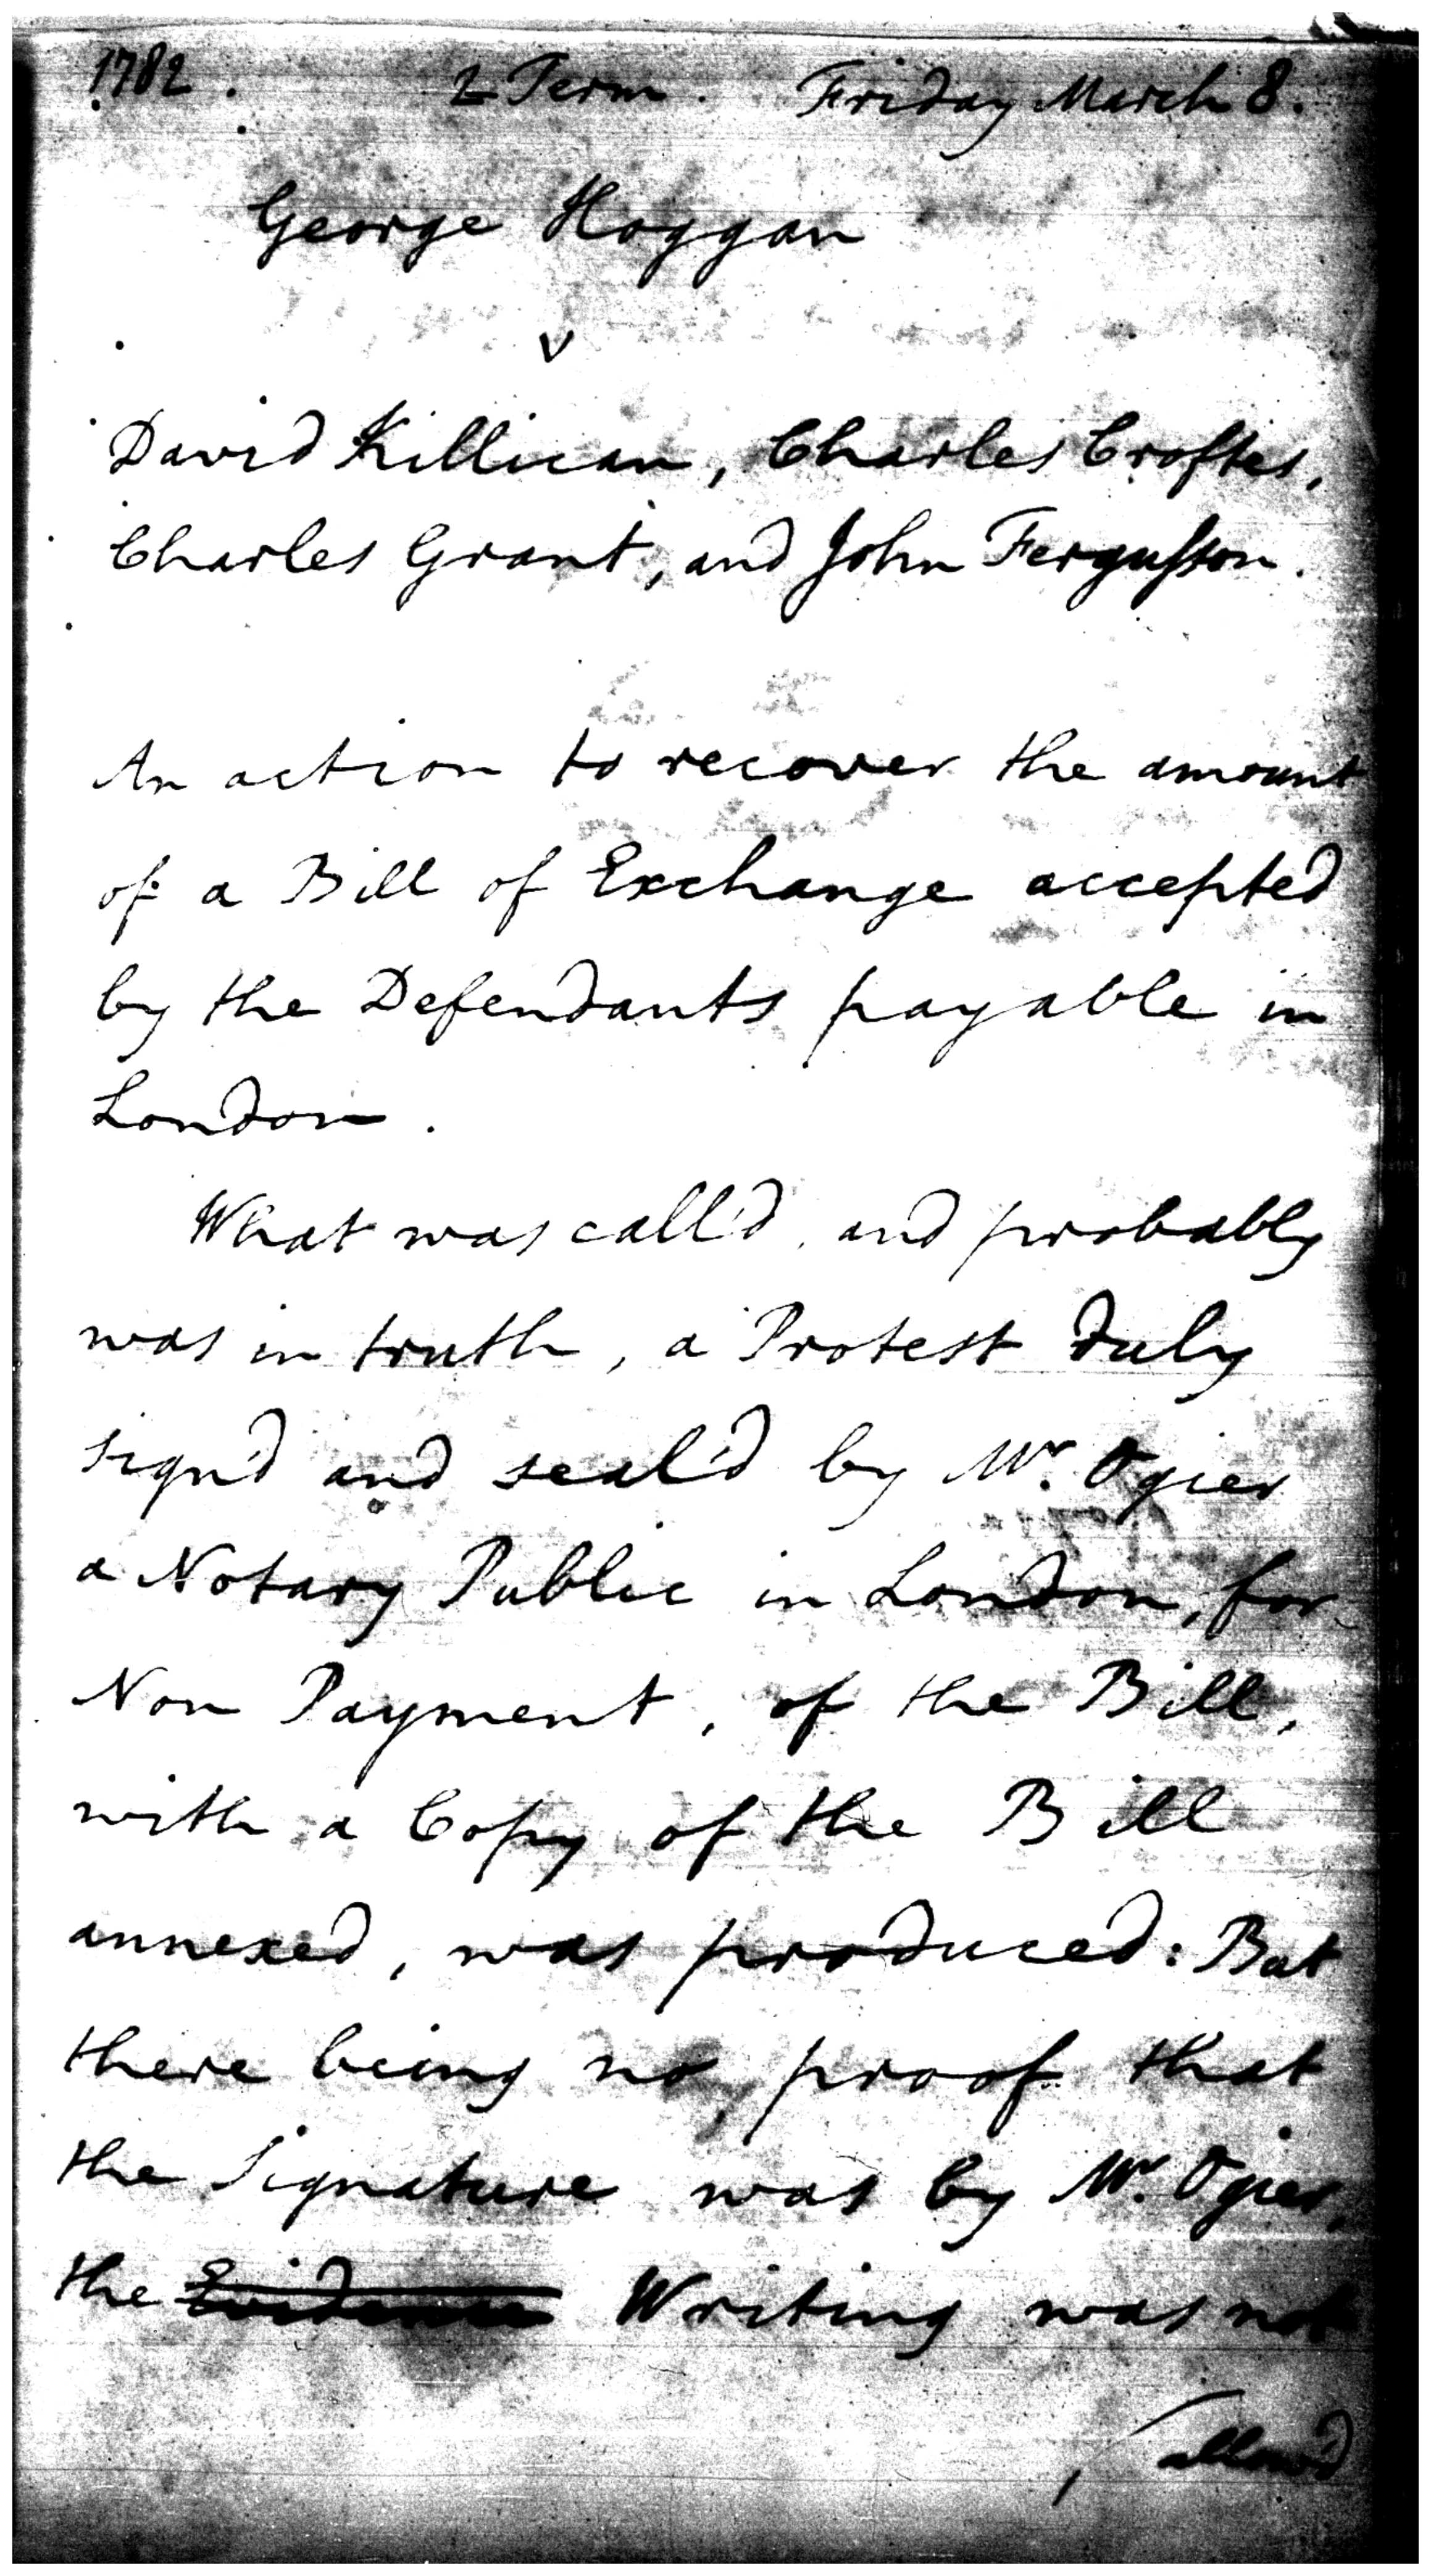 1782. 2 Term. Friday March 8.
George Hoggan
v
David Killican, Charles Croftes,
Charles Grant, and John Fergusson.
An action to recover the amount
of a Bill of Exchange accepted
by the Defendants payable in
London.
What was call'd, and probably
was in truth, a Protest duly
sign'd and seal'd by Mr. Ogier
a Notary Public in London, for
Non Payment, of the Bill,
with a Copy of the Bill
annexed, was produced: But
there being no proof that
the Signature was by Mr. Ogier,
the Evidence Writing was not
allow'd